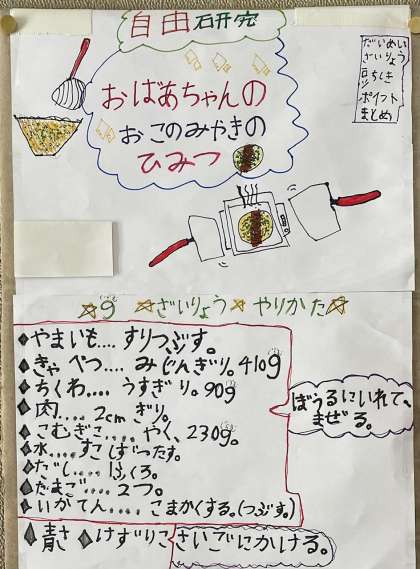 自由研究
だいめい
ざいりょう
豆ちしき
ポイント
まとめ
おばあちゃんの
おこのみやきの
ひみつ
g ざいりょう やりかた
やまいも.... すりつぶす。
きゃべつ.... みじんぎり。410g
ちくわ.... うすぎり。90g
肉.... 2cmぎり。
こむぎこ.... やく、230g。
水.... すこしずつたす。
だし.... 1ふくろ。
たまご.... 2つ。
いかてん.... こまかくする。(つぶす。)
ぼうるにいれて、
まぜる。
青さ けずりこ さいごにかける。